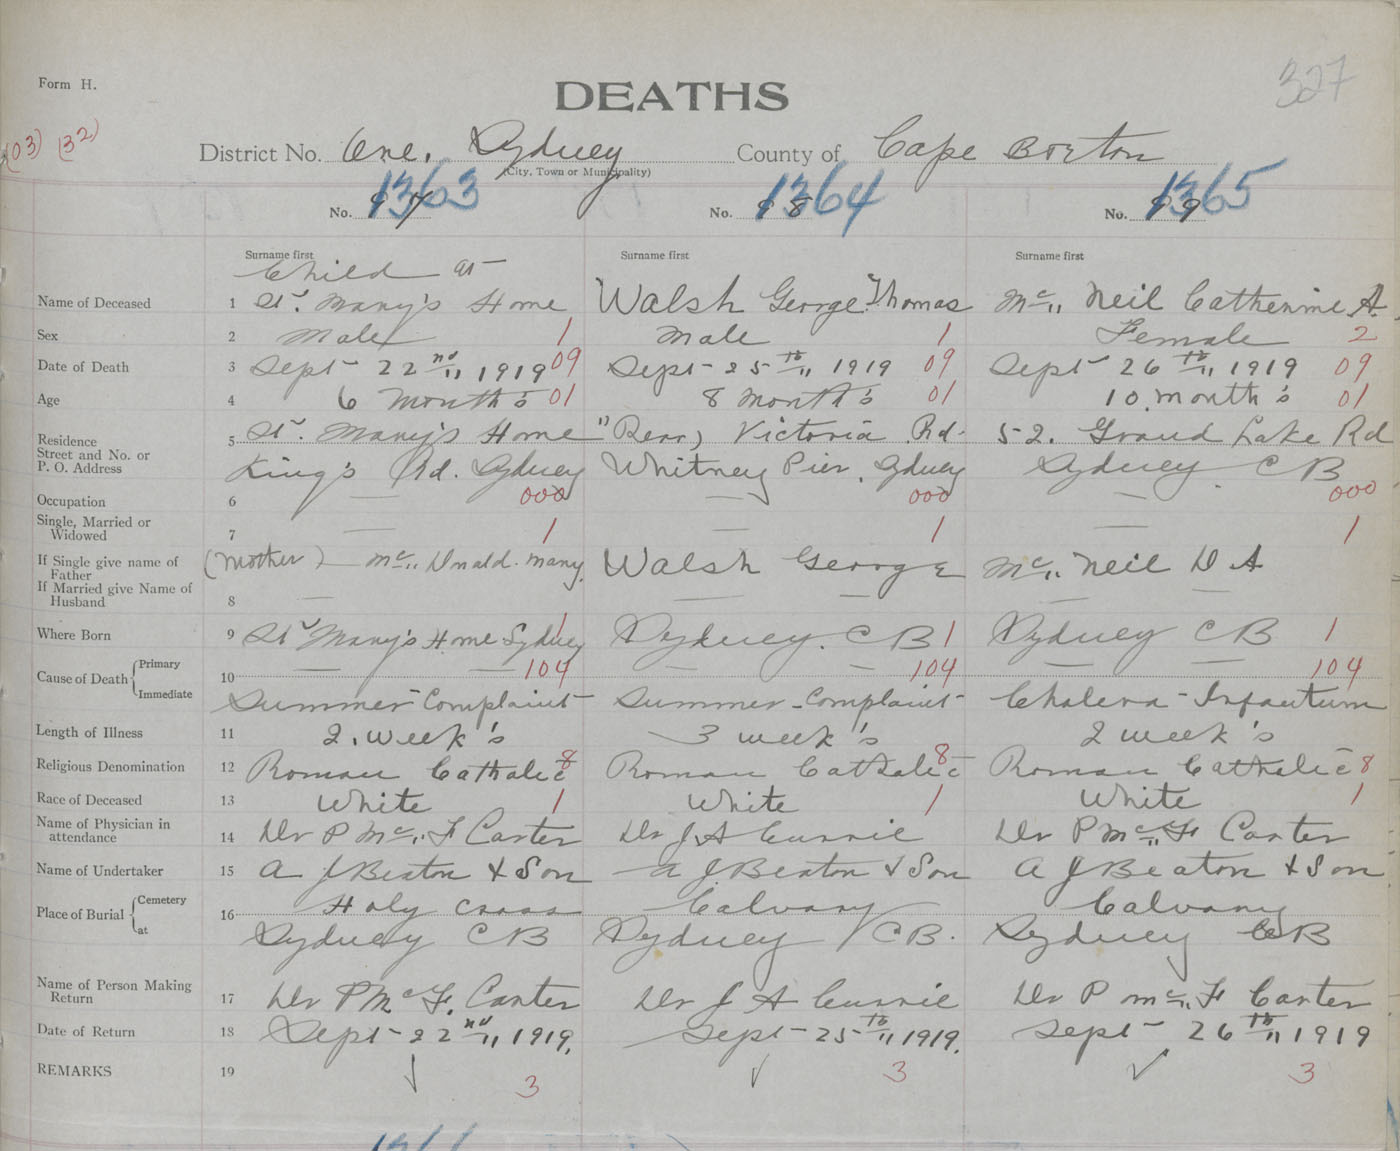 Form H.
327
DEATHS
(03) (32)
District No. One. Sydney County of Cape Breton
(City, Town or Municipality)
No. 1363 No. 1364 No. 1365
97 98 99
Surname first Surname first Surname first
Child at
Name of Deceased 1 St. Mary's Home Walsh George Thomas Mc Neil Catherine A.
Sex 2 Male 1 Male 1 Female 2
Date of Death 3 Sept 22nd 1919 09 Sept 25th 1919 09 Sept 26th 1919 09
Age 4 6 Month's 01 8 month's 01 10 month's 01
Residence
Street and No. or
P. O. Address
5 St. Mary's Home "Rear) Victoria Rd. 52. Grand Lake Rd
King's Rd. Sydney Whitney Pier, Sydney Sydney C B
Occupation 6 — 000 — 000 — 000
Single, Married or
Widowed
7 — 1 — 1 — 1
If Single give name of
Father
(Mother) Mc Donald. Mary. Walsh George Mc Neil D A
If Married give Name of
Husband
8 — — — — —
Where Born 9 St Mary's Home Sydney 1 Sydney. C B 1 Sydney C B 1
Cause of Death { Primary 10 — — 104 — — 104 — — 104
Immediate Summer Complaint Summer-Complaint Cholera-Infantum
Length of Illness 11 2. week's 3 week's 2 week's
Religious Denomination 12 Roman Catholic 8 Roman Catholic 8 Roman Catholic 8
Race of Deceased 13 White 1 White 1 White 1
Name of Physician in
attendance
14 Dr P Mc F Carter Dr J. A Currie Dr P Mc F Carter
Name of Undertaker 15 A J Beaton & Son A J Beaton & Son A J Beaton & Son.
Place of Burial { Cemetery 16 Holy Cross Calvary Calvary
at Sydney C B Sydney C B. Sydney C B
Name of Person Making
Return
17 Dr P Mc F. Carter Dr J A Currie Dr P Mc F Carter
Date of Return 18 Sept 22nd 1919. Sept 25th 1919. Sept 26th 1919
REMARKS 19 ✓ 3 ✓ 3 ✓ 3